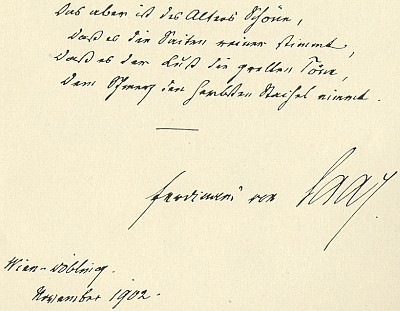 Das aber ist des Alters Schöne,
Daß es die Saiten reiner stimmt,
Daß es der Lust die grellen Töne,
Dem Schmerz den herbsten Stachel nimmt.
Ferdinand von Saar.
Wien-Döbling.
November 1902.